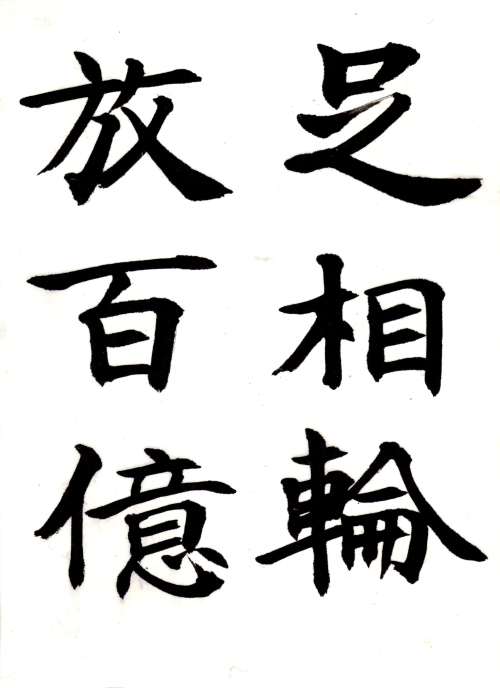 足相輪
放百億